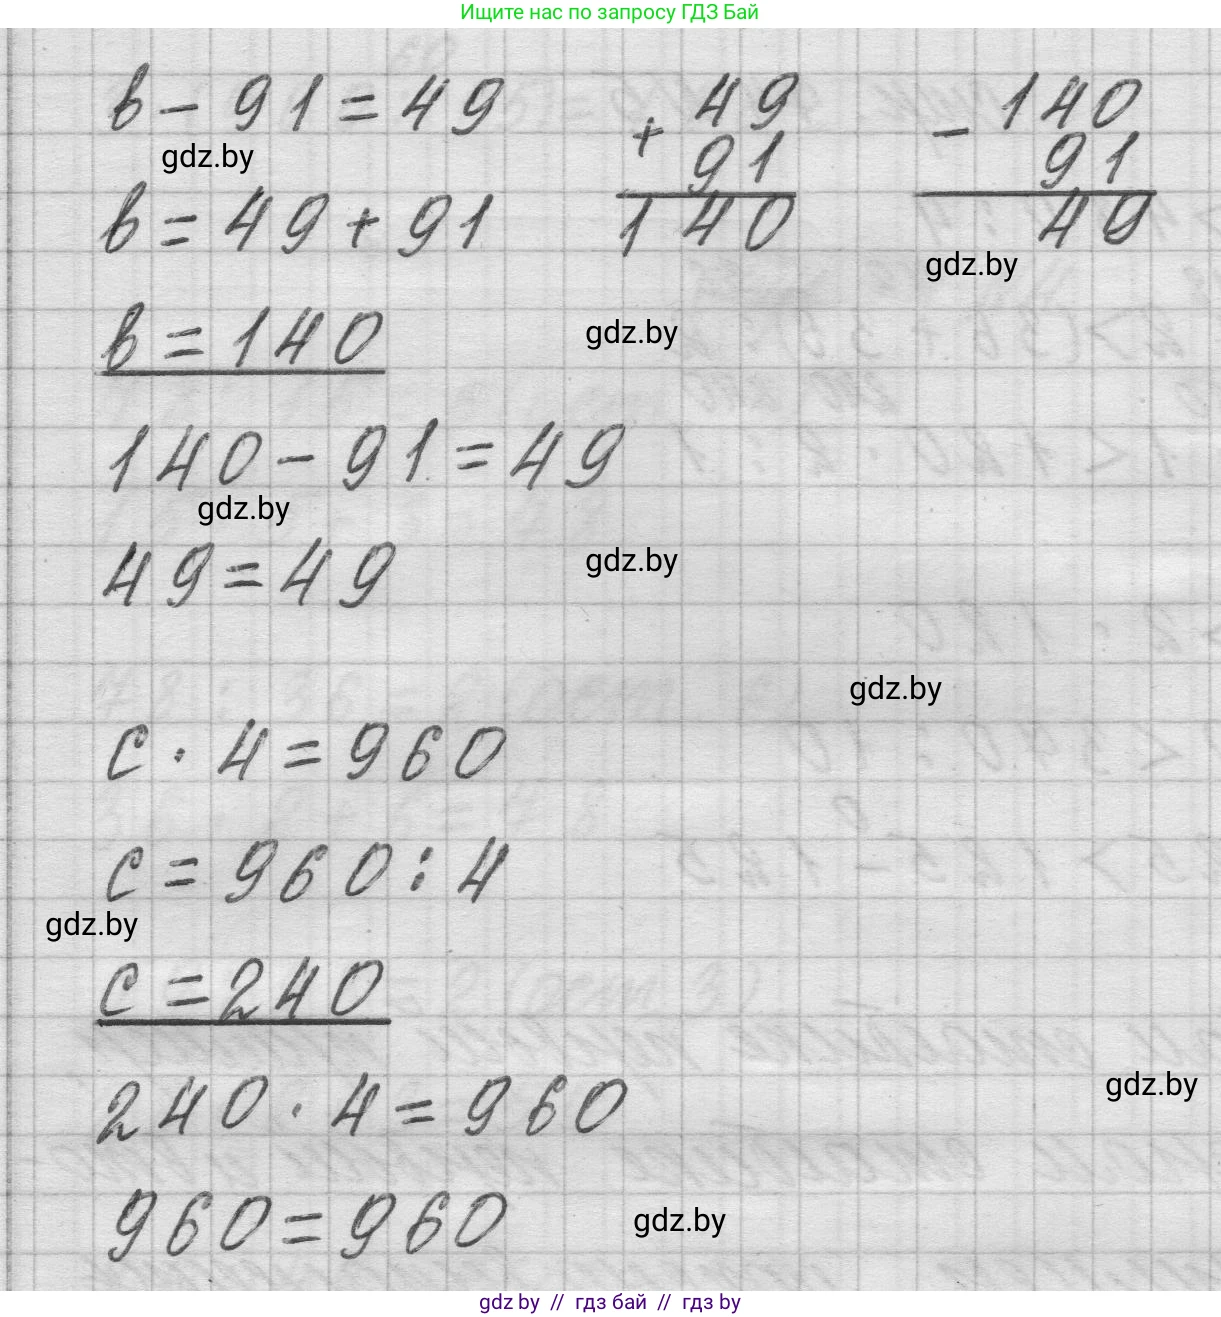 Ищите нас по запросу ГДЗ Бай
в - 91 = 49
gdz.by
в = 49 + 91
в = 140
140 - 91 = 49
gdz.by
49 = 49
+ 49
91
140
- 140
91
49
gdz.by
gdz.by
gdz.by
gdz.by
с · 4 = 960
с = 960 : 4
gdz.by
с = 240
240 · 4 = 960
gdz.by
960 = 960
gdz.by
gdz by // гдз бай // гдз by